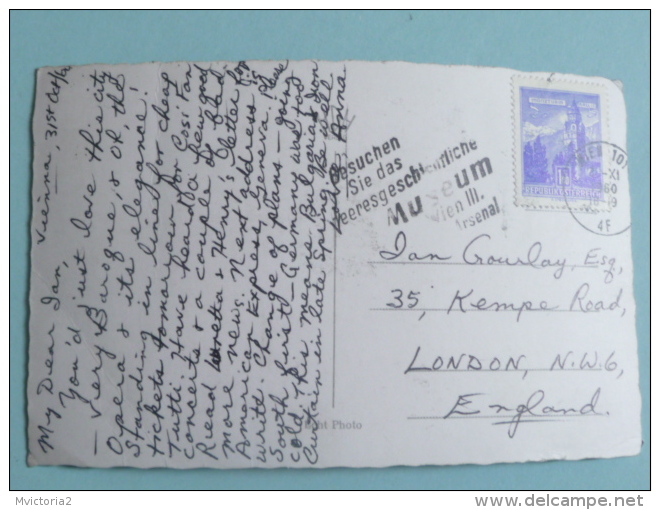 My Dear Ian, Vienna, 31st Oct/60
You'd just love this city
- very Baroque, & Oh the
Opera & its elegance!
Standing in lines for cheap
tickets tomorrow for Cosi Fan
Tutti. Have heard a few good
concerts & a couple of bad.
Read Loretta & Henry's letter for
more news. Next address is
American Express, Geneva. Please
write. Change of plans - going
South first - Germany was too
cold. This means Bulgaria & Iron
Curtain in late Spring. Be well
Love, Anna
Besuchen
Sie das
Heeresgeschichtliche
Museum
Wien III.
Arsenal
REPUBLIK ÖSTERREICH
WIEN 101
-XI
60
19
4F
Ian Gourlay, Esq,
35, Kempe Road,
LONDON, N.W.6,
England.
Photo
Mvictoria2
delcampe.net